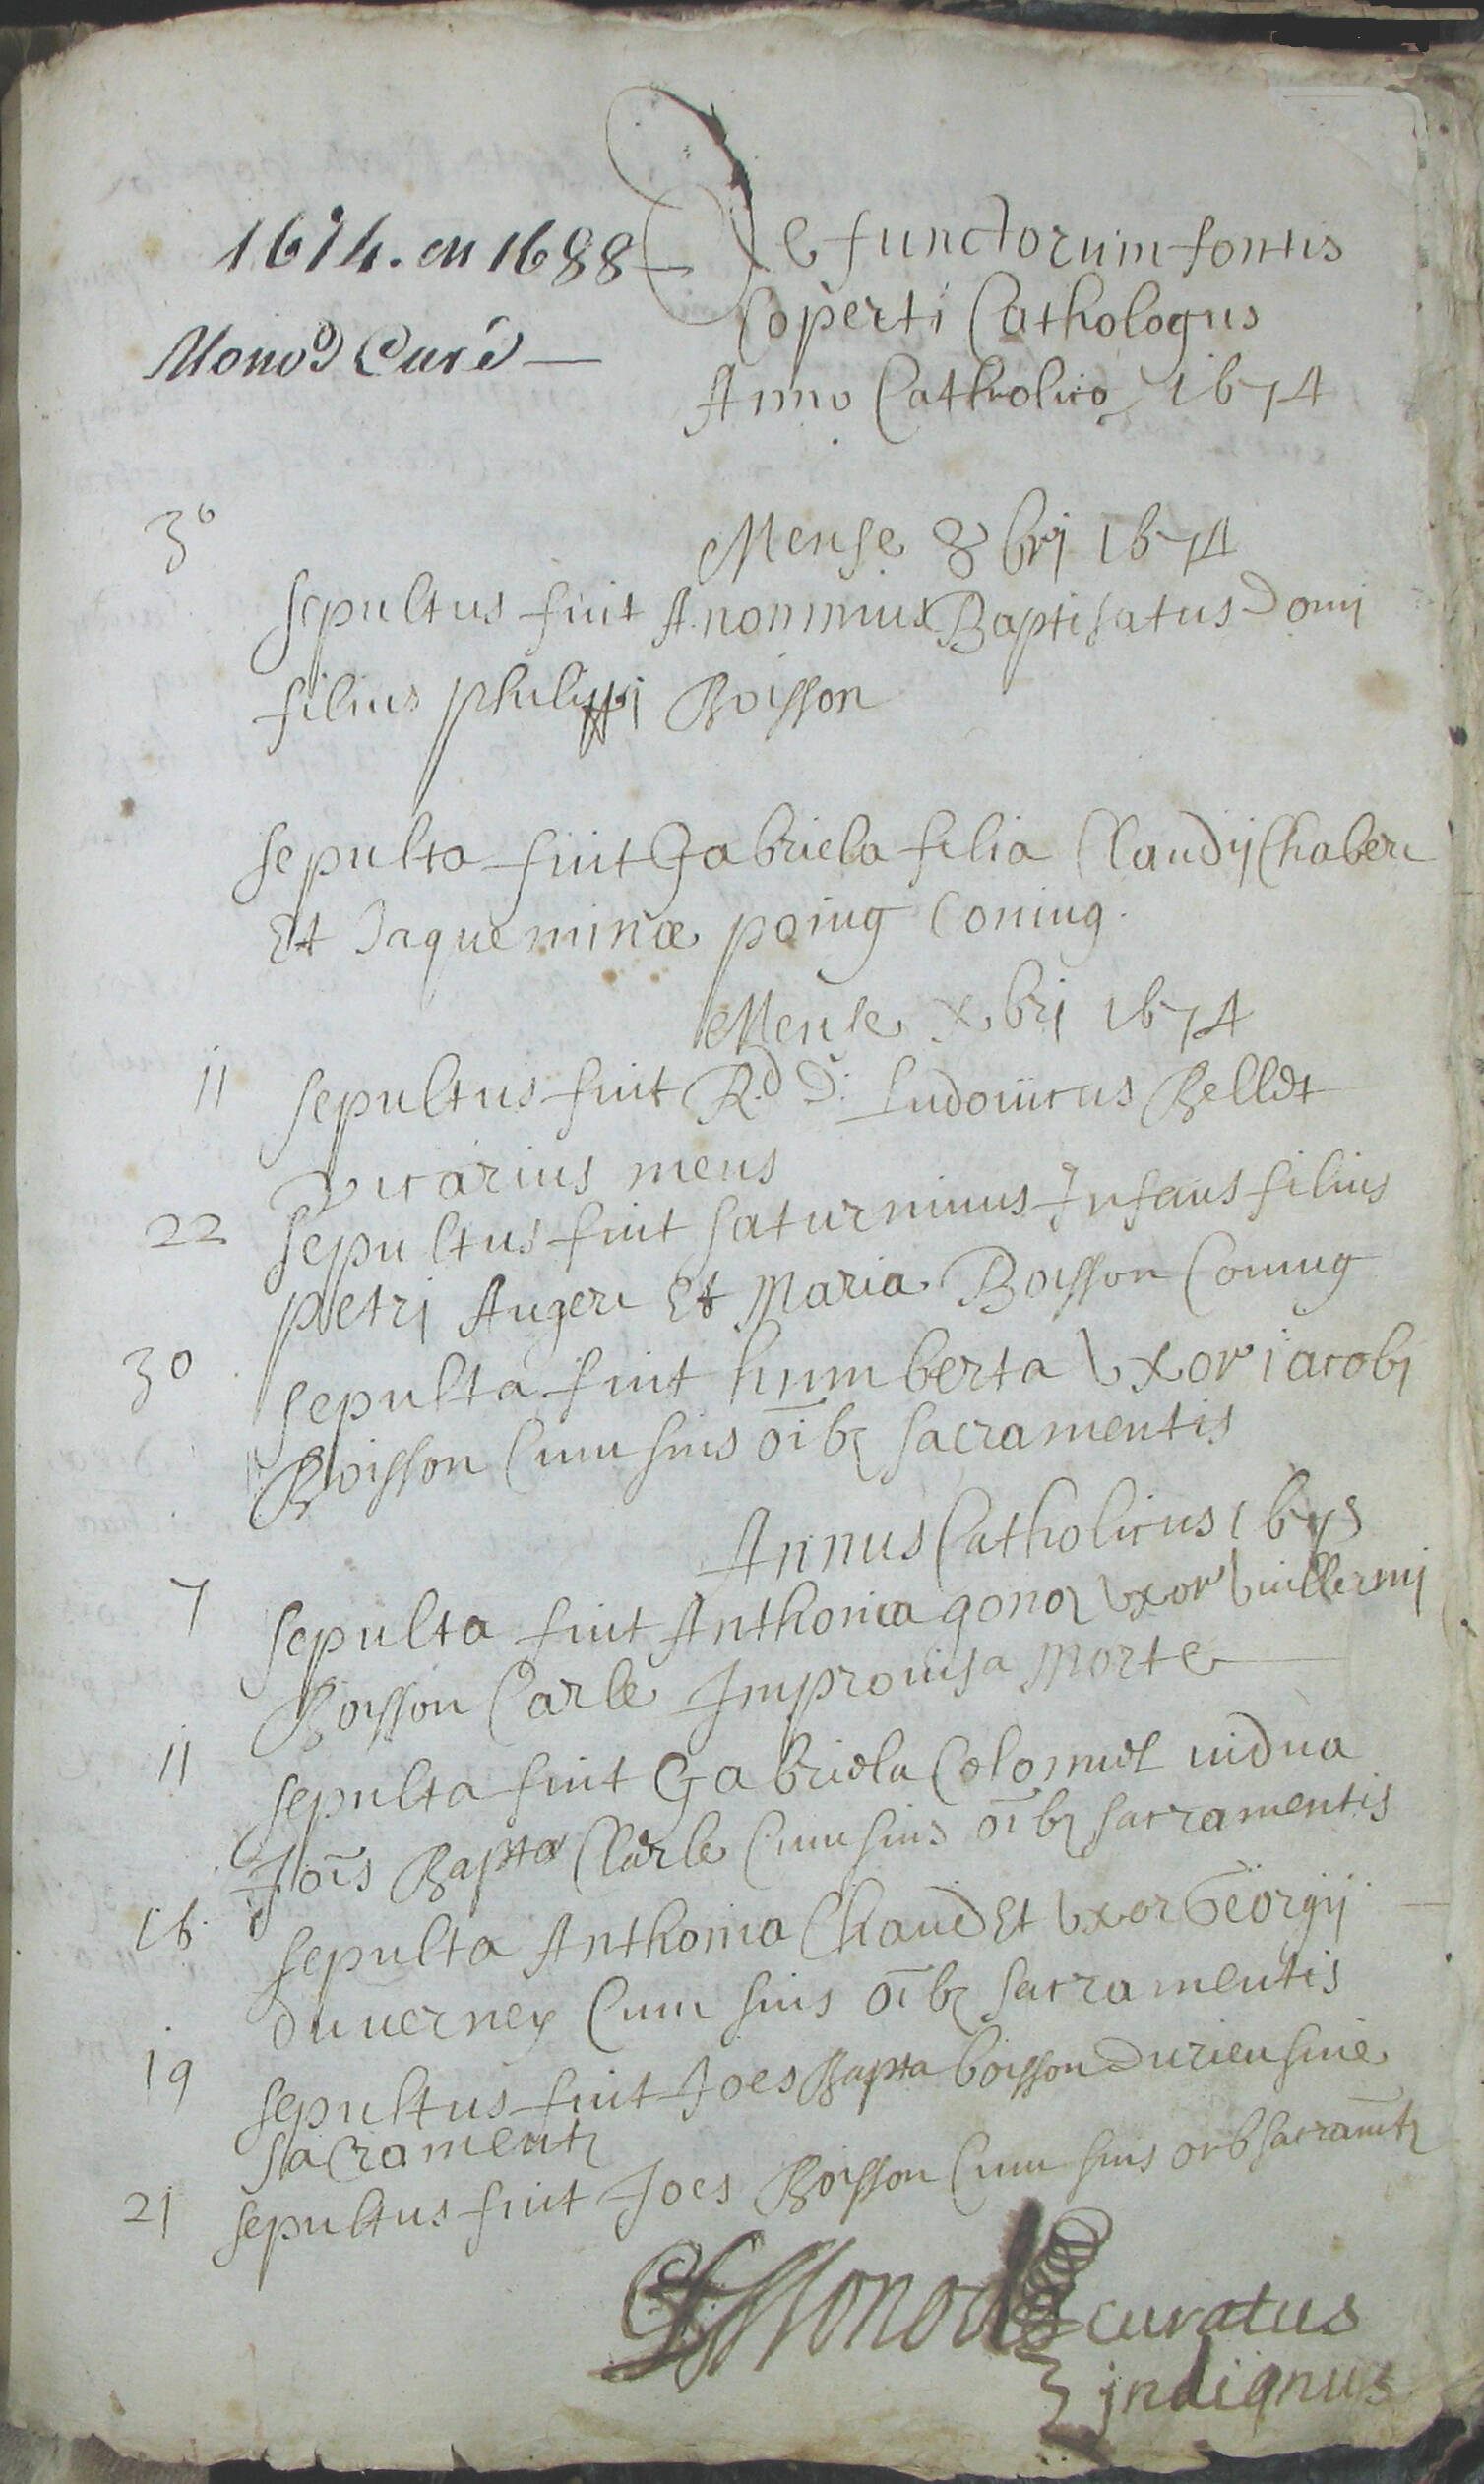 1674. en 1688 —
Monod Curé —
Defunctorum fontis
Coperti Cathologus
Anno Catholico 1674
3o
Mense 8bri 1674
Sepultus fuit Anonimus Baptisatus Domi
filius philippi Boisson
Sepulta fuit Gabriela filia Claudij Chaberi
Et Jaqueminæ poing Coniug.
Mense xbri 1674
11 Sepultus fuit R.d D. Ludouicus Bellet
Vicarius meus
22 Sepultus fuit Saturninus Infans filius
petri Augeri Et Maria Boisson Coniug
30 Sepulta fuit humberta Vxor iacobi
Boisson Cum suis oībȝ sacramentis
Annus Catholicus 1675
7 Sepulta fuit Anthonia Vxor Vuillermi
Boisson Carle Improuisa Morte
11 Sepulta fuit Gabriela Colomet uidua
Joīs Bapta Clarle Cum suis oībȝ sacramentis
16 Sepulta Anthonia ChaudEt Vxor Georgij
duuerney Cum suis oībȝ sacramentis
19 Sepultus fuit Joes Bapta boisson durieu sine
sacramentȝ
21 Sepultus fuit Joes Boisson Cum suis sacramtȝ
Monod curatus
indignus